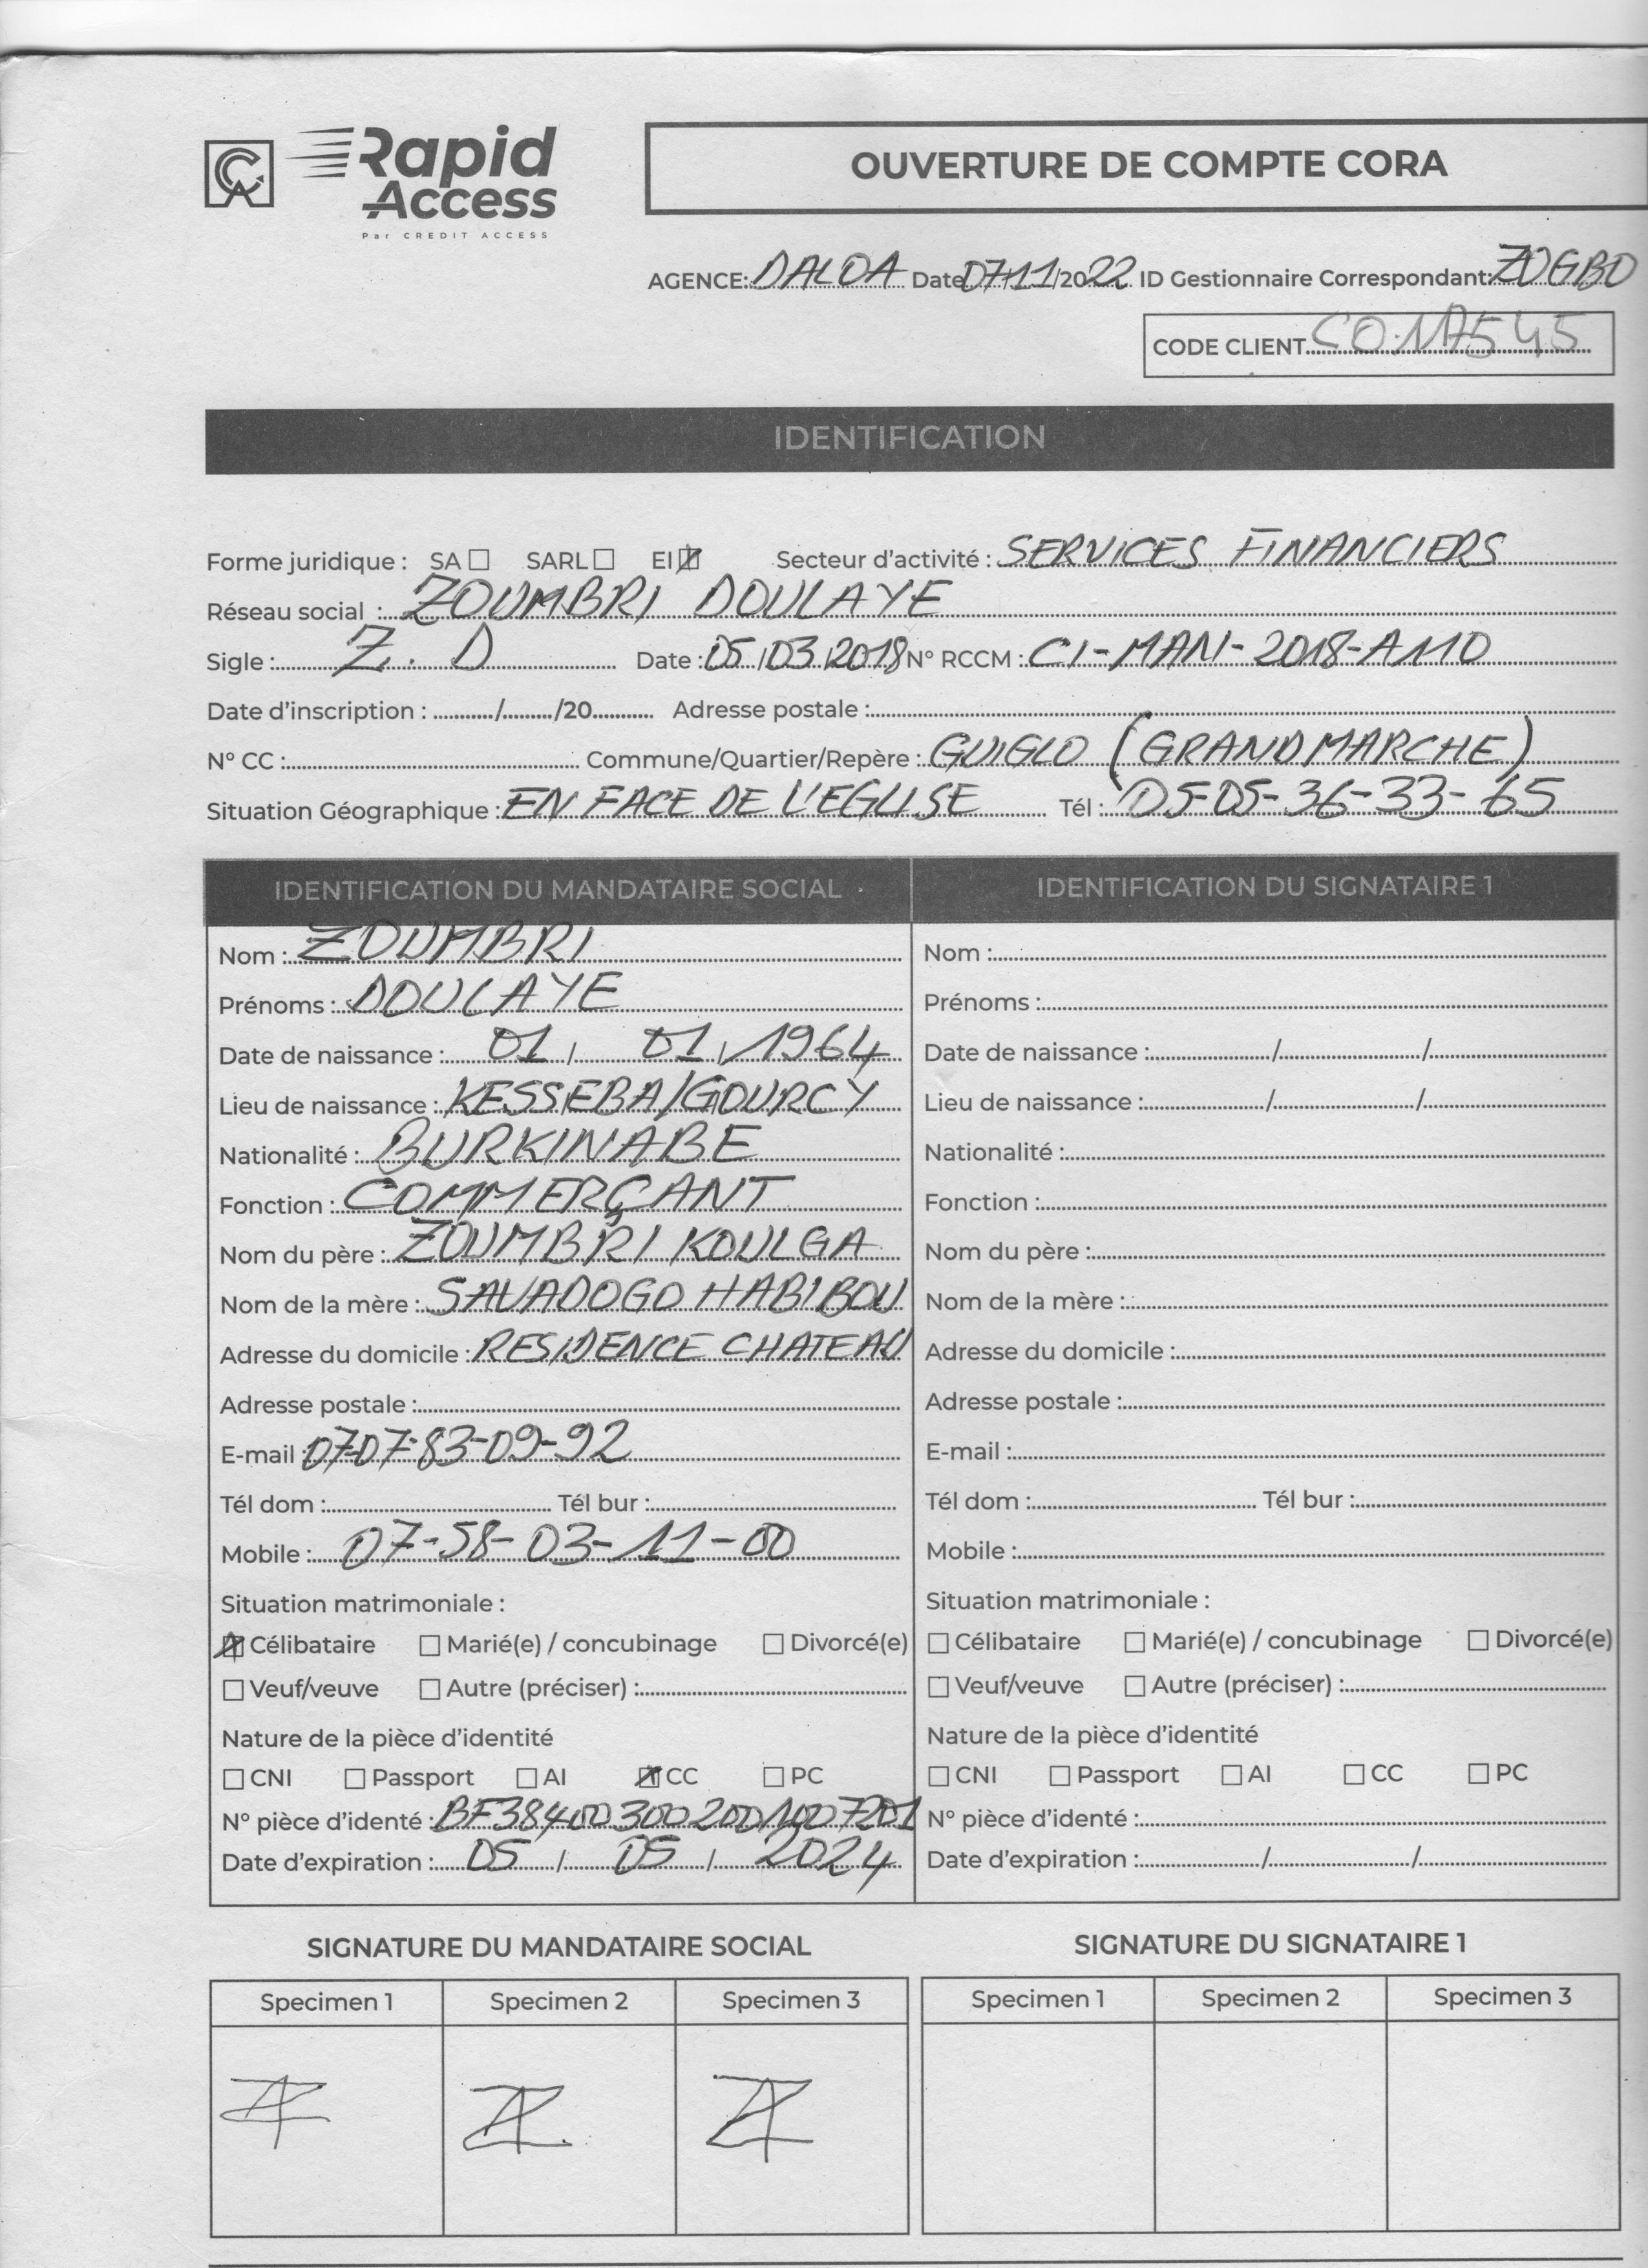 Rapid
Access
Par CREDIT ACCESS
OUVERTURE DE COMPTE CORA
AGENCE: DALOA Date 07/11/2022 ID Gestionnaire Correspondant: ZOGBO
CODE CLIENT CO17545
IDENTIFICATION
Forme juridique : SA SARL EI Secteur d'activité : SERVICES FINANCIERS
Réseau social : ZOUMBRI DOULAYE
Sigle : Z. D Date : 05/03/2018 N° RCCM : CI-MAN-2018-A110
Date d'inscription : ........../........./20........... Adresse postale :
N° CC : Commune/Quartier/Repère : GUIGLO (GRAND MARCHE)
Situation Géographique : EN FACE DE L'EGLISE Tél : 05-05-36-33-65
IDENTIFICATION DU MANDATAIRE SOCIAL
Nom : ZOUMBRI
Prénoms : DOULAYE
Date de naissance : 01 / 01 / 1964
Lieu de naissance : KESSEBA/GOURCY
Nationalité : BURKINABE
Fonction : COMMERÇANT
Nom du père : ZOUMBRI KOULGA
Nom de la mère : SAVADOGO HABIBOU
Adresse du domicile : RESIDENCE CHATEAU
Adresse postale :
E-mail : 07-07-83-09-92
Tél dom : Tél bur :
Mobile : 07-58-03-11-00
Situation matrimoniale :
Célibataire Marié(e) / concubinage Divorcé(e)
Veuf/veuve Autre (préciser) :
Nature de la pièce d'identité
CNI Passport AI CC PC
N° pièce d'identé : BF384003002001007201
Date d'expiration : 05 / 05 / 2024
IDENTIFICATION DU SIGNATAIRE 1
Nom :
Prénoms :
Date de naissance : / /
Lieu de naissance : / /
Nationalité :
Fonction :
Nom du père :
Nom de la mère :
Adresse du domicile :
Adresse postale :
E-mail :
Tél dom : Tél bur :
Mobile :
Situation matrimoniale :
Célibataire Marié(e) / concubinage Divorcé(e)
Veuf/veuve Autre (préciser) :
Nature de la pièce d'identité
CNI Passport AI CC PC
N° pièce d'identé :
Date d'expiration : / /
SIGNATURE DU MANDATAIRE SOCIAL
Specimen 1 Specimen 2 Specimen 3
SIGNATURE DU SIGNATAIRE 1
Specimen 1 Specimen 2 Specimen 3